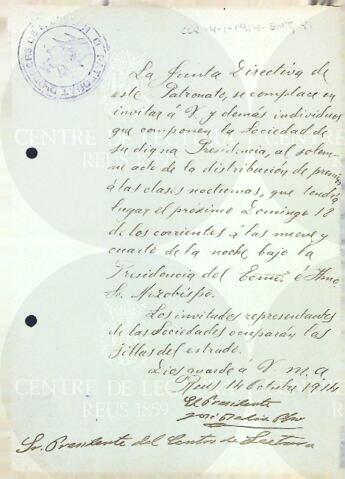 CCR-4-1-1914-
La Junta Directiva de
este Patronato, se complace en
invitar á V. y demás individuos
que componen la Sociedad de
su digna Presidencia, al solem-
ne acto de la distribucion de premios
á las clases nocturnas, que tendrá
lugar el próximo Domingo 18
de los corrientes á las nueve y
cuarto de la noche bajo la
Presidencia del Excmo. é Ilmo
Sr. Arzobispo.
Los invitados representantes
de las Sociedades ocuparán las
sillas del estrado.
Dios guarde á V. m. a.
Reus 14 Octubre 1914
El Presidente
José
Sr. Presidente del Centro de Lectura
CENTRE DE LECTURA
REUS 1859
CENTRE DE LECTURA
REUS 1859